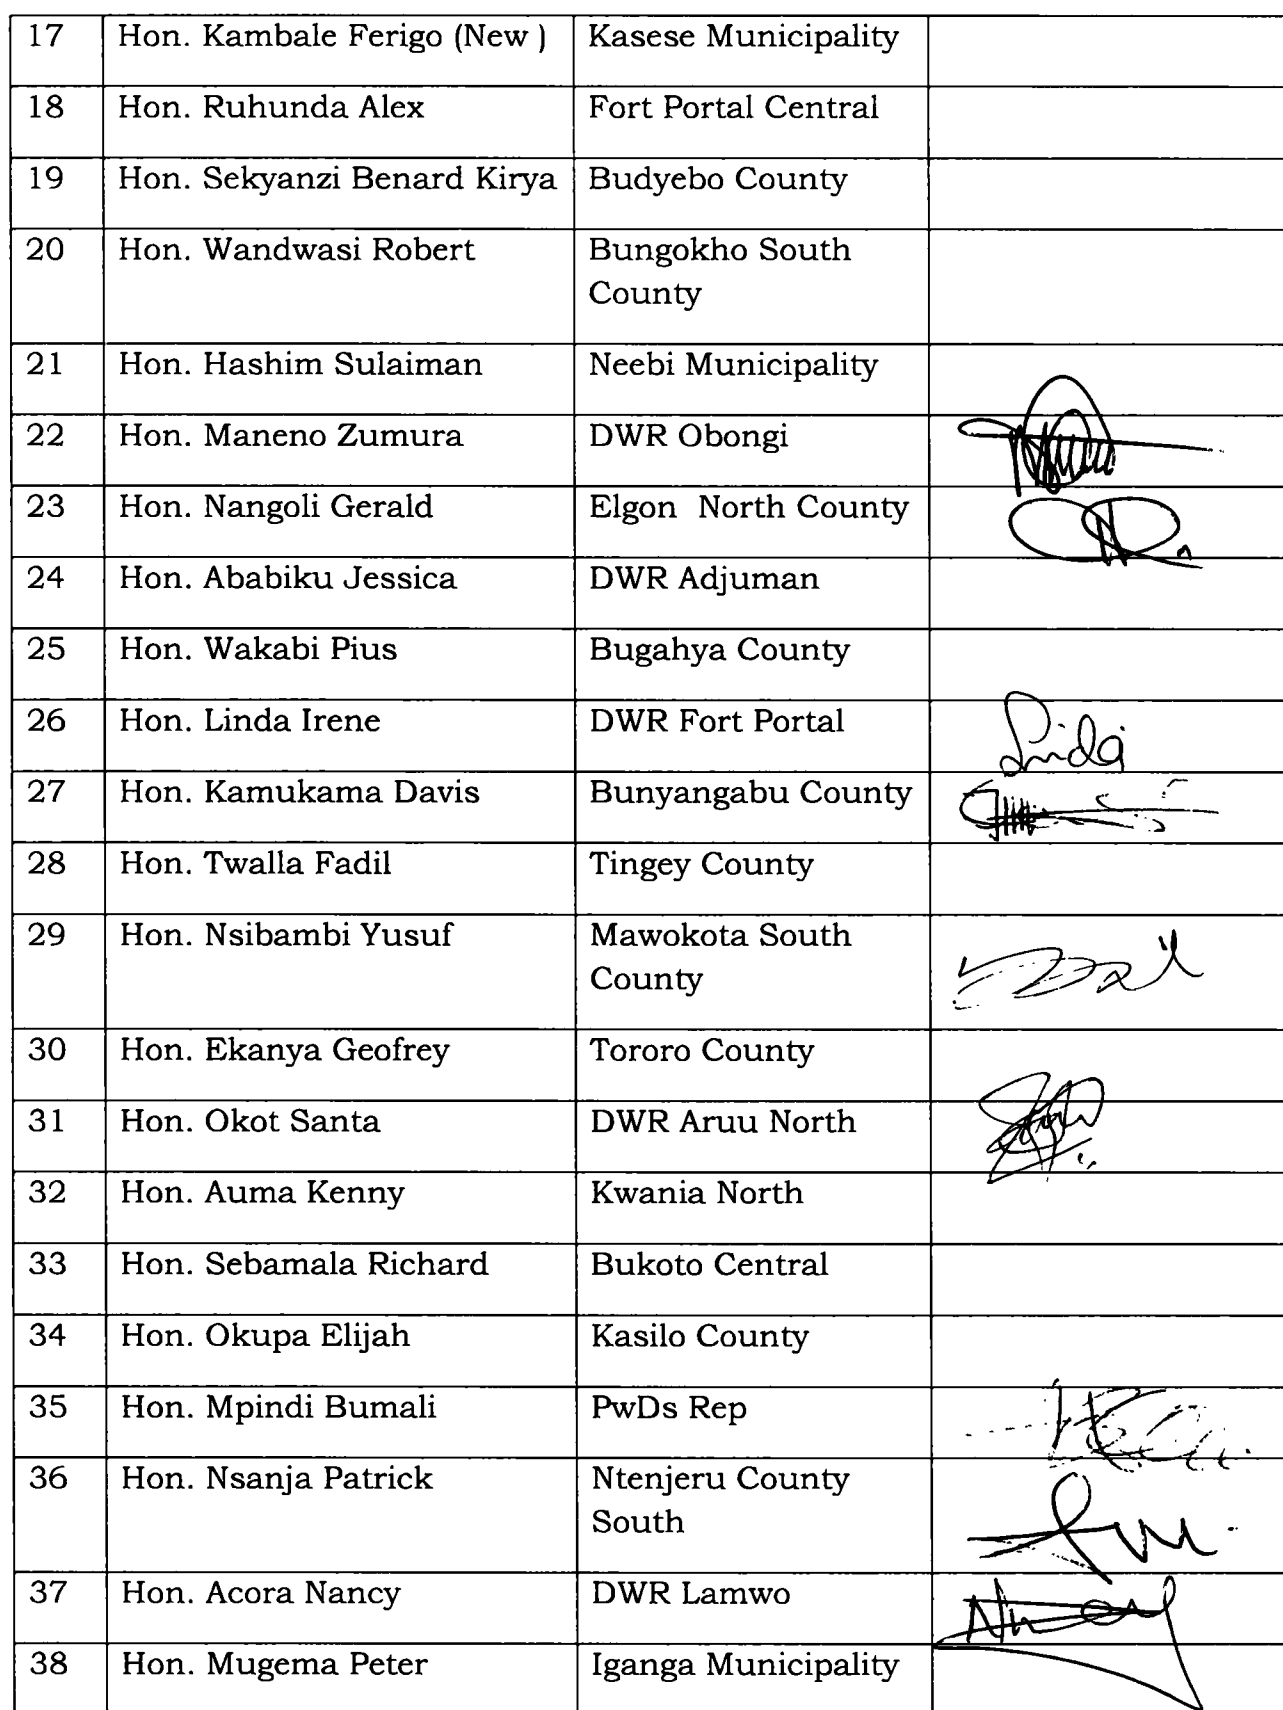 17 Hon. Kambale Ferigo (New ) Kasese Municipality
18 Hon. Ruhunda Alex Fort Portal Central
19 Hon. Sekyanzi Benard Kirya Budyebo County
20 Hon. Wandwasi Robert Bungokho South
County
21 Hon. Hashim Sulaiman Neebi Municipality
22 Hon. Maneno Zumura DWR Obongi
23 Hon. Nangoli Gerald Elgon North County
24 Hon. Ababiku Jessica DWR Adjuman
25 Hon. Wakabi Pius Bugahya County
26 Hon. Linda Irene DWR Fort Portal Linda
27 Hon. Kamukama Davis Bunyangabu County
28 Hon. Twalla Fadil Tingey County
29 Hon. Nsibambi Yusuf Mawokota South
County
30 Hon. Ekanya Geofrey Tororo County
31 Hon. Okot Santa DWR Aruu North
32 Hon. Auma Kenny Kwania North
33 Hon. Sebamala Richard Bukoto Central
34 Hon. Okupa Elijah Kasilo County
35 Hon. Mpindi Bumali PwDs Rep
36 Hon. Nsanja Patrick Ntenjeru County
South
37 Hon. Acora Nancy DWR Lamwo
38 Hon. Mugema Peter Iganga Municipality